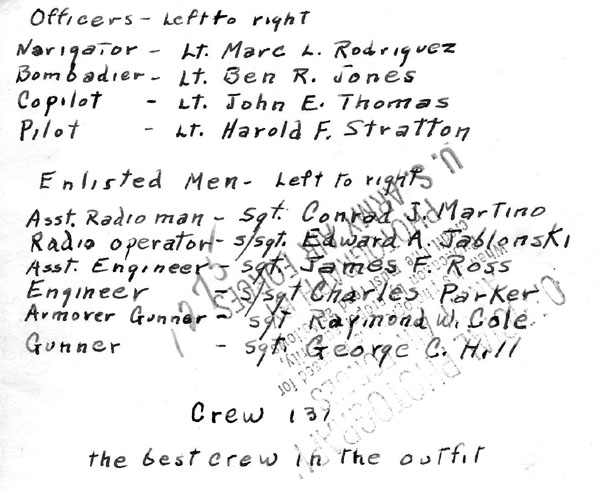 Officers - Left to right
Navigator - Lt. Marc L. Rodriguez
Bombadier - Lt. Ben R. Jones
Copilot - Lt. John E. Thomas
Pilot - Lt. Harold F. Stratton
Enlisted Men - Left to right
Asst. Radio man - Sgt. Conrad J. Martino
Radio operator - S/Sgt. Edward A. Jablonski
Asst. Engineer - Sgt. James F. Ross
Engineer - S/Sgt Charles Parker
Armorer Gunner - Sgt Raymond W. Cole
Gunner - Sgt. George C. Hill
Crew 137
the best crew in the outfit
U.S. ARMY AIR FORCES